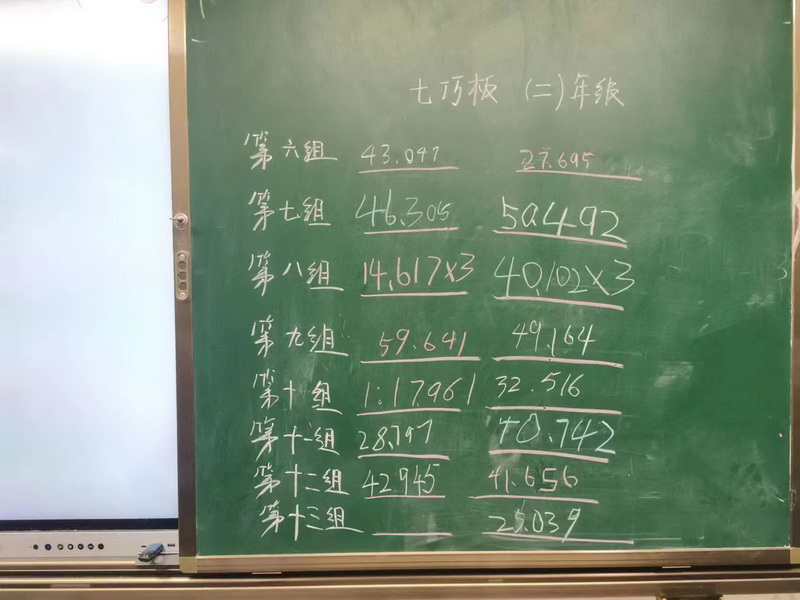 七巧板 (二)年级
第六组 43.047 27.695
第七组 46.305 50.492
第八组 14.617x3 40.102x3
第九组 59.641 49.164
第十组 1:17.961 32.516
第十一组 28.797 40.742
第十二组 42.945 41.656
第十三组 25.039